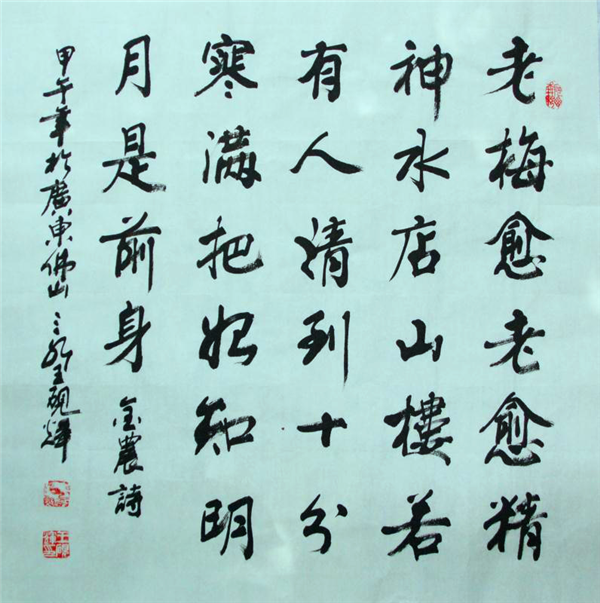 老梅愈老愈精
神水店山樓若
有人清到十分
寒滿把始知明
月是前身
金農詩
甲午年於廣東佛山
王硯輝